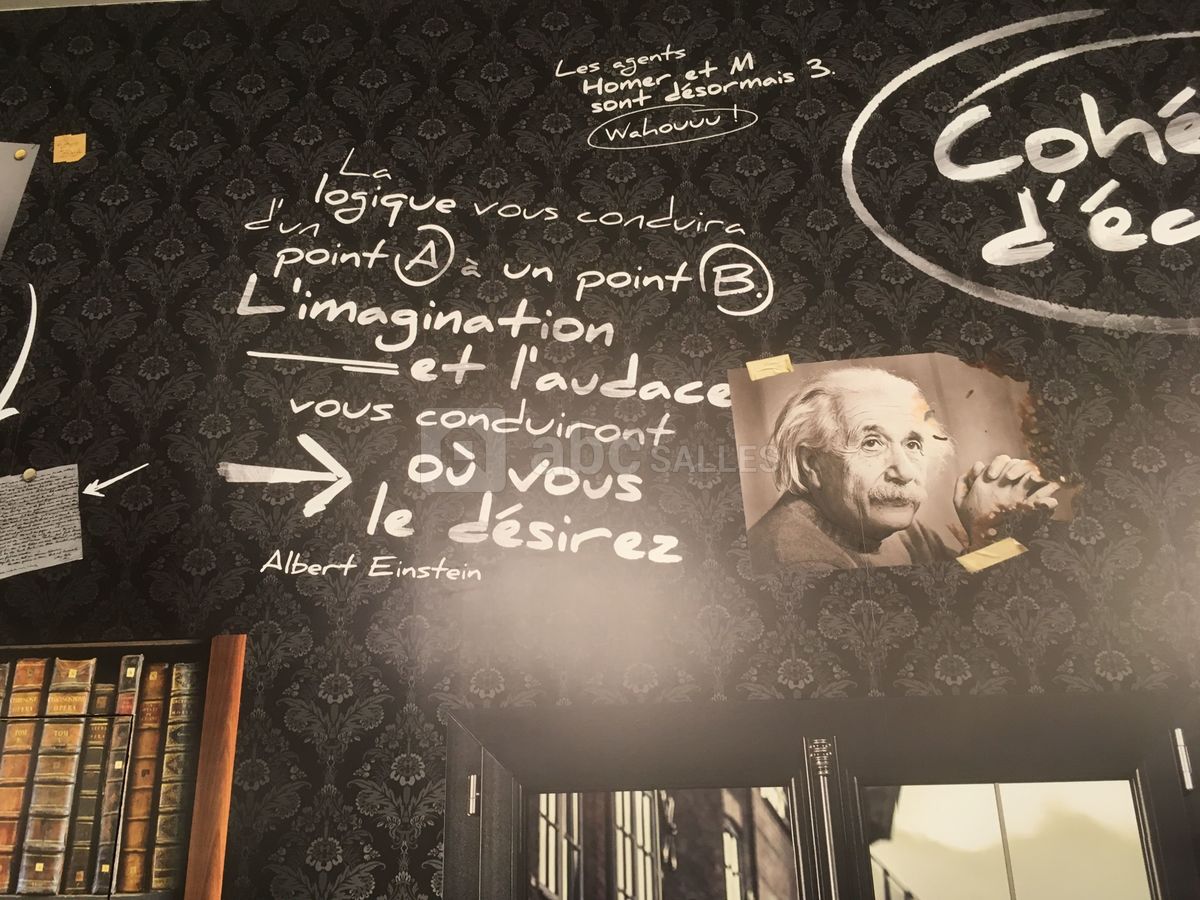 Les agents
Homer et M
sont désormais 3.
Wahouuu !
Cohé
d'éc
La
logique vous conduira
d'un
point A à un point B.
L'imagination
et l'audace
vous conduiront
où vous
le désirez
Albert Einstein
abc SALLES
OPERA
OPERA
TOM
TOM